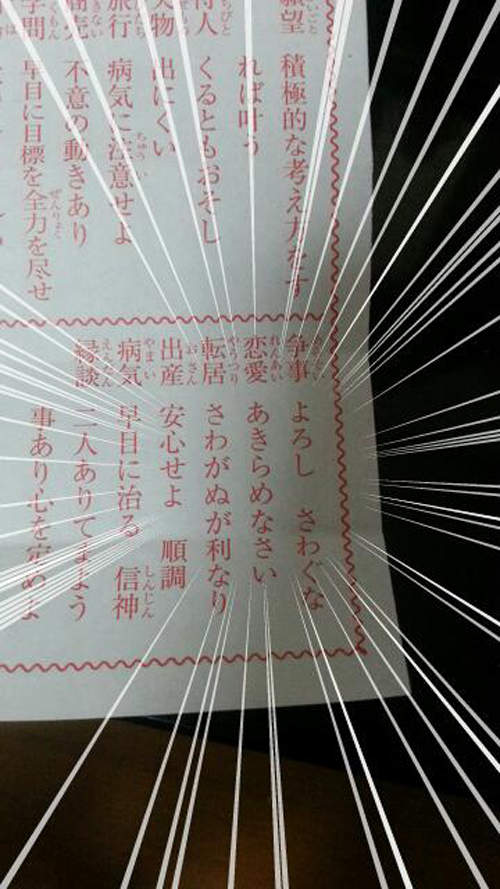 願望 積極的な考え方をす
れば叶う
待人 くるともおそし
失物 出にくい
旅行 病気に注意せよ
商売 不意の動きあり
学問 早目に目標を全力を尽せ
争事 よろし さわぐな
恋愛 あきらめなさい
転居 さわがぬが利なり
出産 安心せよ 順調
病気 早目に治る 信神
縁談 二人ありてまよう
事あり心を定めよ